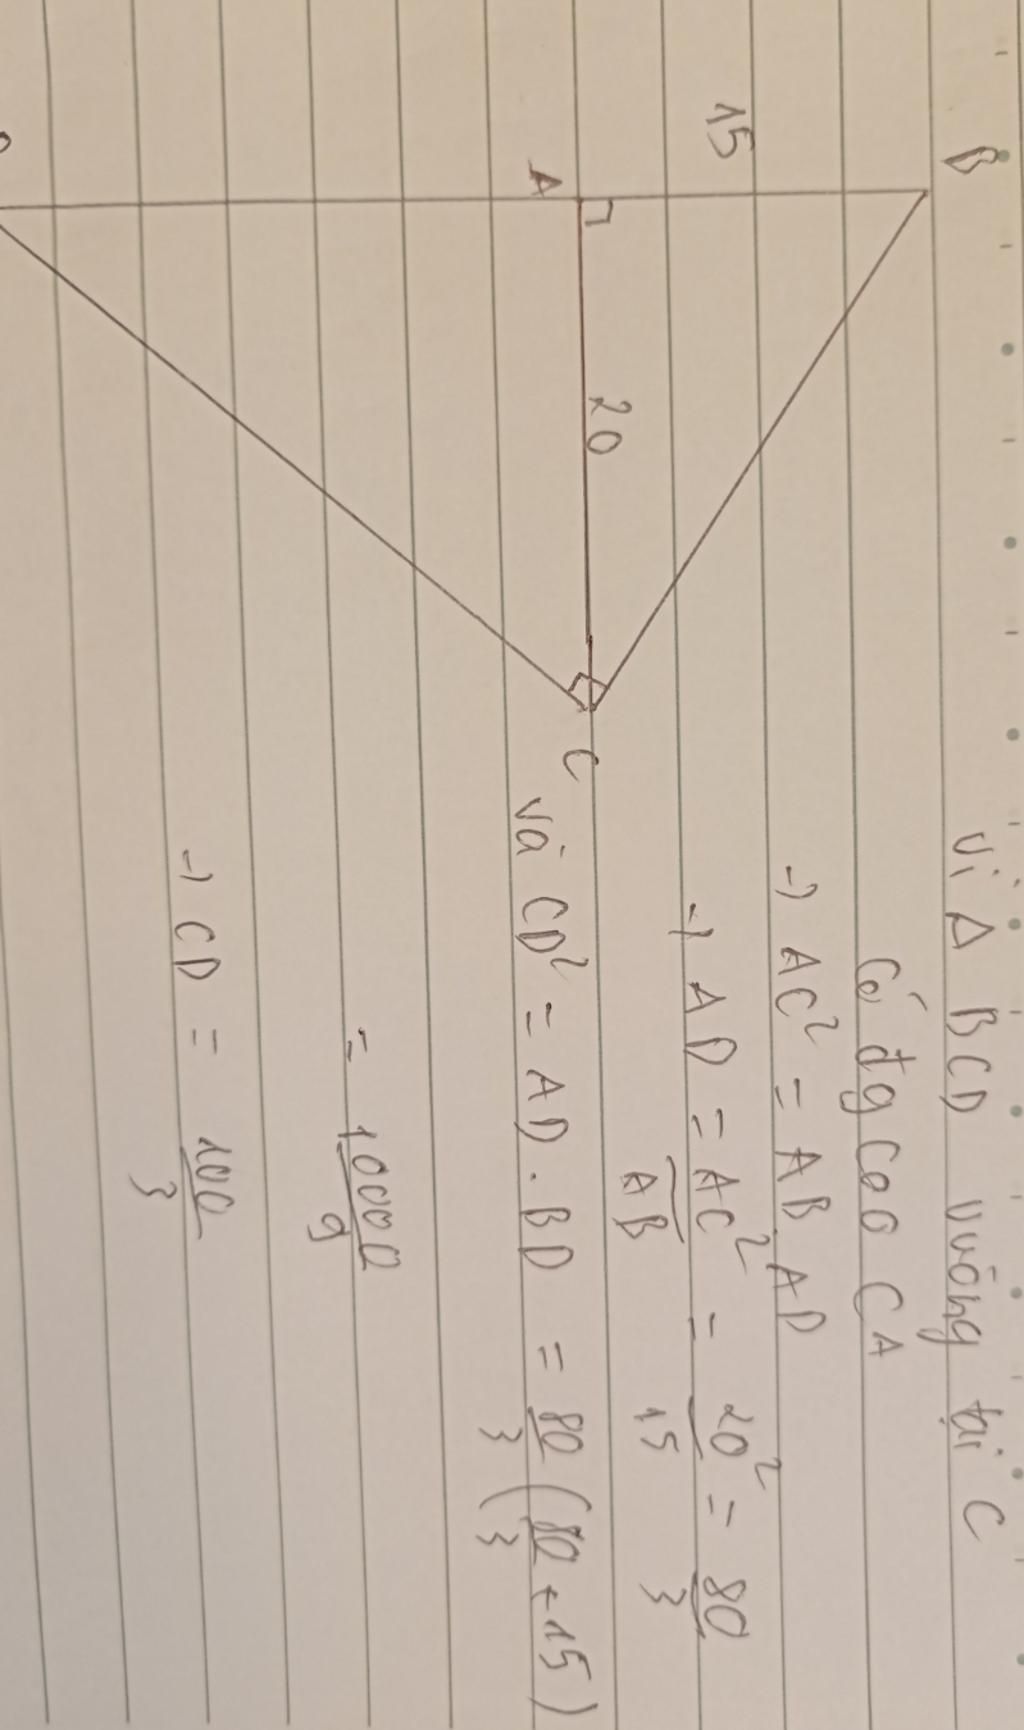 B
15
A
20
C
Vì Δ BCD vuông tại C
Có đg cao CA
→ AC² = AB.AD
→ AD = AC²/AB = 20²/15 = 80/3
và CD² = AD.BD = 80/3 (80/3 + 15)
= 10000/9
→ CD = 100/3